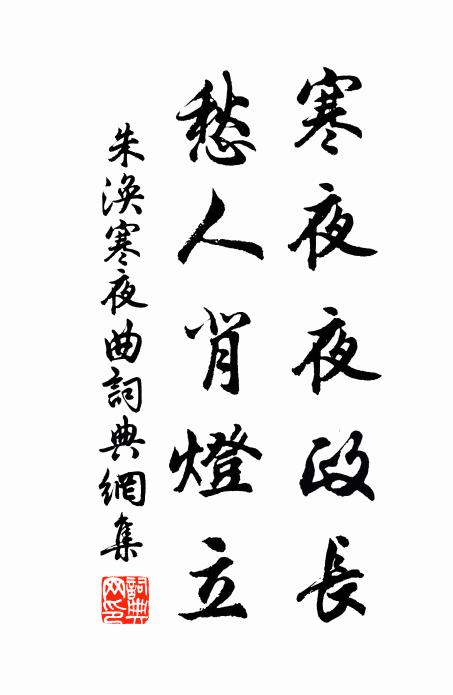 寒夜夜政長
愁人背燈立
朱渙寒夜曲詞典網集
詞典網印